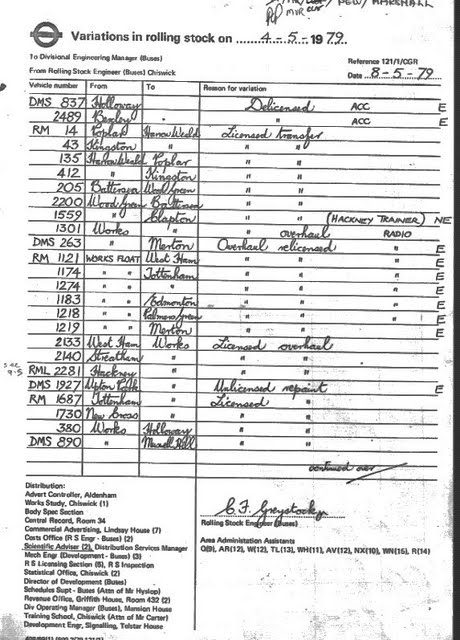 MVR
PEW / MARSHALL
Variations in rolling stock on 4-5-1979.
To Divisional Engineering Manager (Buses)
Reference 121/1/CGR
From Rolling Stock Engineer (Buses) Chiswick
Date 8-5-79
Vehicle number From To Reason for variation
DMS 837 Holloway Delicensed ACC E
2489 Bexley " " ACC E
RM 14 Poplar Harrow Weald Licensed transfer
43 Kingston " " "
135 Harrow Weald Poplar " "
412 " Kingston " "
205 Battersea Wood Green " "
2200 Wood Green Battersea " "
1559 " Clapton " " (HACKNEY TRAINER) NE
1301 Works " " overhaul RADIO
DMS 263 " Merton Overhaul relicensed " E
RM 1121 WORKS FLOAT West Ham " " " E
1174 " " Tottenham " " " E
1274 " " " " " " E
1183 " " Edmonton " " " E
1218 " " Palmers Green " " " E
1219 " " Merton " " E
2133 West Ham Works Licensed overhaul
2140 Streatham " " "
RML 2281 Hackney " " "
DMS 1927 Upton Park " Unlicensed repaint E
RM 1687 Tottenham " Licensed "
1730 New Cross " " "
380 Works Holloway " "
DMS 890 " Muswell Hill " "
continued over
Distribution:
Advert Controller, Aldenham
Works Study, Chiswick (1)
Body Spec Section
Central Record, Room 34
Commercial Advertising, Lindsay House (7)
Costs Office (R S Engr - Buses) (2)
Scientific Adviser (2), Distribution Services Manager
Mech Engr (Development - Buses) (3)
R S Licensing Section (6), R S Inspection
Statistical Office, Chiswick (2)
Director of Development (Buses)
Schedules Supt - Buses (Attn of Mr Hyslop)
Revenue Office, Griffith House, Room 432 (2)
Div Operating Manager (Buses), Mansion House
Training School, Chiswick (Attn of Mr Carter)
Development Engr, Signalling, Telstar House
C. F. Greystock
Rolling Stock Engineer (Buses)
Area Administration Assistants
Q(9), AR(12), W(12), TL(13), WH(11), AV(12), NX(10), WN(15), R(14)